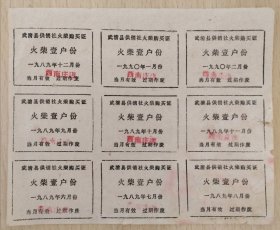 武清县供销社火柴购买证
火柴壹户份
一九八九年十二月份
西南庄
当月有效 过期作废
武清县供销社火柴购买证
火柴壹户份
一九九〇年一月份
当月有效 过期作废
武清县供销社火柴购买证
火柴壹户份
一九九〇年二月份
当月有效 过期作废
武清县供销社火柴购买证
火柴壹户份
一九八九年九月份
当月有效 过期作废
武清县供销社火柴购买证
火柴壹户份
一九八九年十月份
西南庄
当月有效 过期作废
武清县供销社火柴购买证
火柴壹户份
一九八九年十一月份
当月有效 过期作废
武清县供销社火柴购买证
火柴壹户份
一九八九年六月份
当月有效 过期作废
武清县供销社火柴购买证
火柴壹户份
一九八九年七月份
当月有效 过期作废
武清县供销社火柴购买证
火柴壹户份
一九八九年八月份
当月有效 过期作废